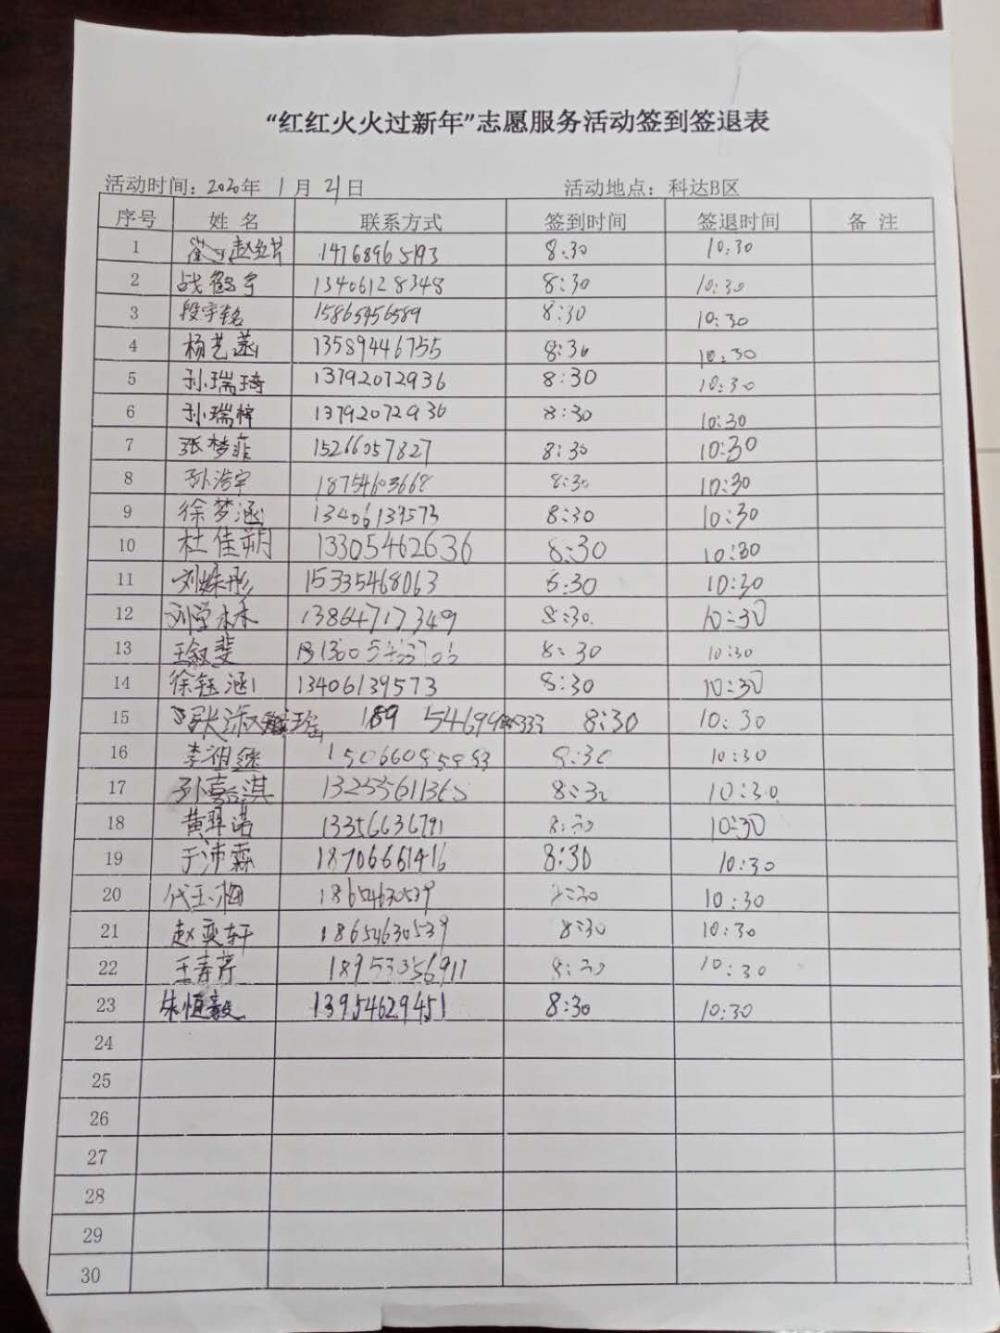 “红红火火过新年”志愿服务活动签到签退表
活动时间：2020年 1月 21日 活动地点：科达B区
序号 姓 名 联系方式 签到时间 签退时间 备 注
1 8:30 10:30
2 战鹤宇 13406128348 8:30 10:30
3 段宇铭 15865456589 8:30 10:30
4 杨艺涵 13589446755 8:30 10:30
5 孙瑞琦 13792072936 8:30 10:30
6 孙瑞梓 13792072936 8:30 10:30
7 张梦菲 15266057827 8:30 10:30
8 孙浩宇 18754603668 8:30 10:30
9 徐梦涵 13406139573 8:30 10:30
10 杜佳朔 13305462636 8:30 10:30
11 刘姝彤 15335468063 8:30 10:30
12 刘学森 13864717349 8:30. 10:30
13 王叙斐 8:30 10:30
14 徐钰涵 13406139573 8:30 10:30
15 8:30 10:30
16 李祖继 8:30 10:30
17 孙嘉淇 8:30 10:30
18 黄羿诺 13356636791 8:30 10:30
19 于沛霖 18706661416 8:30 10:30
20 代玉梅 18654630539 8:30 10:30
21 赵奕轩 18654630539 8:30 10:30
22 王春芹 18953356911 8:30 10:30
23 朱恒毅 13954629451 8:30 10:30
24
25
26
27
28
29
30